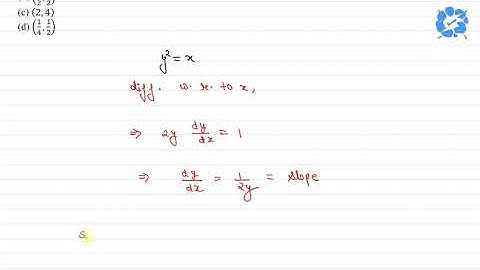 (c) (2, 4)
(d) (1/4, 1/2)
y² = x
diff. w. r. to x,
⇒ 2y dy/dx = 1
⇒ dy/dx = 1/2y = slope
S